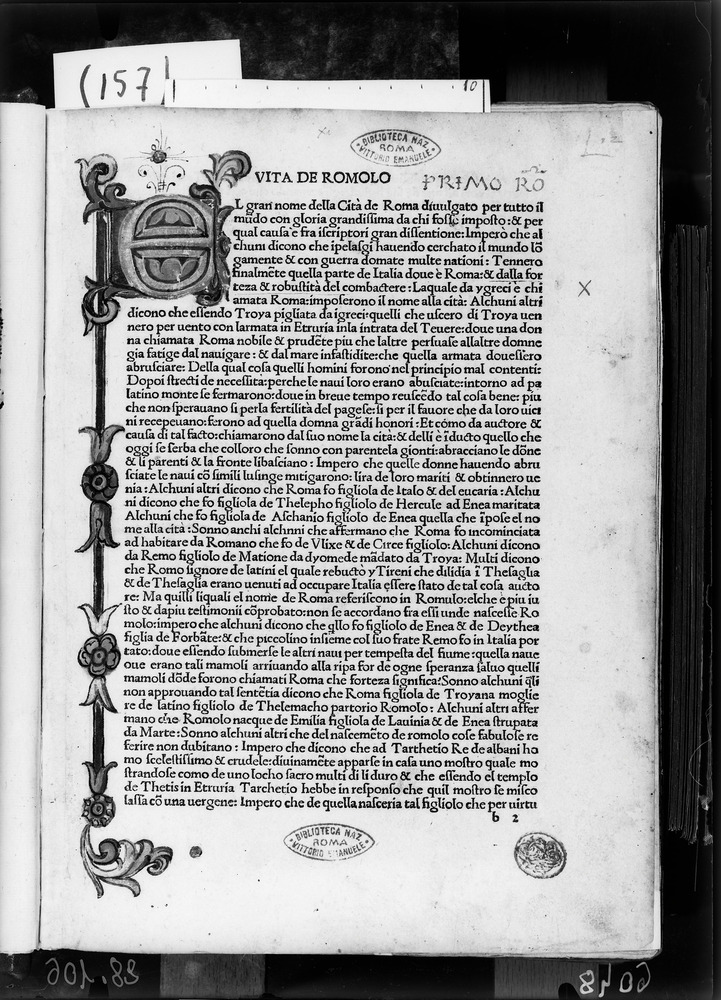 (157)
10
BIBLIOTECA NAZ.
ROMA
VITTORIO EMANUELE
VITA DE ROMOLO PRIMO RO
EL gran nome della Cità de Roma diuulgato per tutto il
mũdo con gloria grandissima da chi fosse imposto :& per
qual causa e fra iscriptori gran dissentione: Imperò che al
chuni dicono che ipelasgi hauendo cerchato il mundo lõ
gamente & con guerra domate multe nationi : Tennero
finalmẽte quella parte de Italia doue è Roma:& dalla for
teza & robustità del combactere : Laquale da ygreci è chi
amata Roma: imposerono il nome alla cità: Alchuni altri
dicono che essendo Troya pigliata da igreci quelli che uscero di Troya uen
nero per uento con larmata in Etruria inla intrata del Teuere: doue una don
na chiamata Roma nobile & prudẽte piu che laltre persuase allaltre domne
gia fatige dal nauigare : & dal mare infastidite: che quella armata douessero
abrusciare: Della qual cosa quelli homini forono nel principio mal contenti:
Dopoi strecti de necessita: perche le naui loro erano abusciate: intorno ad pa
latino monte se fermarono: doue in breue tempo reuscẽdo tal cosa bene: piu
che non sperauano si perla fertilità del pagese: si per il fauore che da loro uici
ni recepeuano: ferono ad quella domna grãdi honori : Et cómo da auctore &
causa di tal facto: chiamarono dal suo nome la cità: & delli è iducto quello che
oggi se serba che colloro che sonno con parentela gionti: abracciano le dõne
& li parenti & la fronte libasciano : Impero che quelle donne hauendo abru
sciate le naui cõ simili lusinge mitigarono: lira de loro mariti & obtinnero ue
nia : Alchuni altri dicono che Roma fo figliola de Italo & del eucaria : Alchu
ni dicono che fo figliola de Thelepho figliolo de Hercule ad Enea maritata
Alchuni che fo figliola de Aschanio figliolo de Enea quella che ipose el no
me alla cità : Sonno anchi alchnni che affermano che Roma fo incominciata
ad habitare da Romano che fo de Vlixe & de Circe figliolo: Alchuni dicono
da Remo figliolo de Matione da dyomede mãdato da Troya: Multi dicono
che Romo signore de latini el quale rebuctò y Tireni che dilidia ĩ Thesaglia
& de Thesaglia erano uenuti ad occupare Italia essere stato de tal cosa aucto
re: Ma quilli liquali el nome de Roma referiscono in Romulo: elche è piu iu
sto & dapiu testimonii cõprobato: non se accordano fra essi unde nascesse Ro
molo: impero che alchuni dicono che qllo fo figliolo de Enea & de Deythea
figlia de Forbãte: & che piccolino insieme col suo frate Remo fo in Italia por
tato: doue essendo submerse le altri naui per tempesta del fiume : quella naue
oue erano tali mamoli arriuando alla ripa for de ogne speranza saluo quelli
mamoli dõde forono chiamati Roma che forteza significa: Sonno alchuni qli
non approuando tal sentẽtia dicono che Roma figliola de Troyana moglie
re de latino figliolo de Thelemacho partorio Romolo : Alchuni altri affer
mano che Romolo nacque de Emilia figliola de Lauinia & de Enea strupata
da Marte: Sonno alchuni altri che del nascemẽto de romolo cose fabulose re
ferire non dubitano : Impero che dicono che ad Tarthetio Re de albani ho
mo scelestissimo & crudele: diuinamẽte apparse in casa uno mostro quale mo
strandose como de uno locho sacro multi di li duro & che essendo el templo
de Thetis in Etruria Tarchetio hebbe in responso che quil mostro se misco
lassa cõ una uergene: Impero che de quella nasceria tal figliolo che per uirtu
b 2
BIBLIOTECA NAZ.
ROMA
VITTORIO EMANUELE
28.106
6048